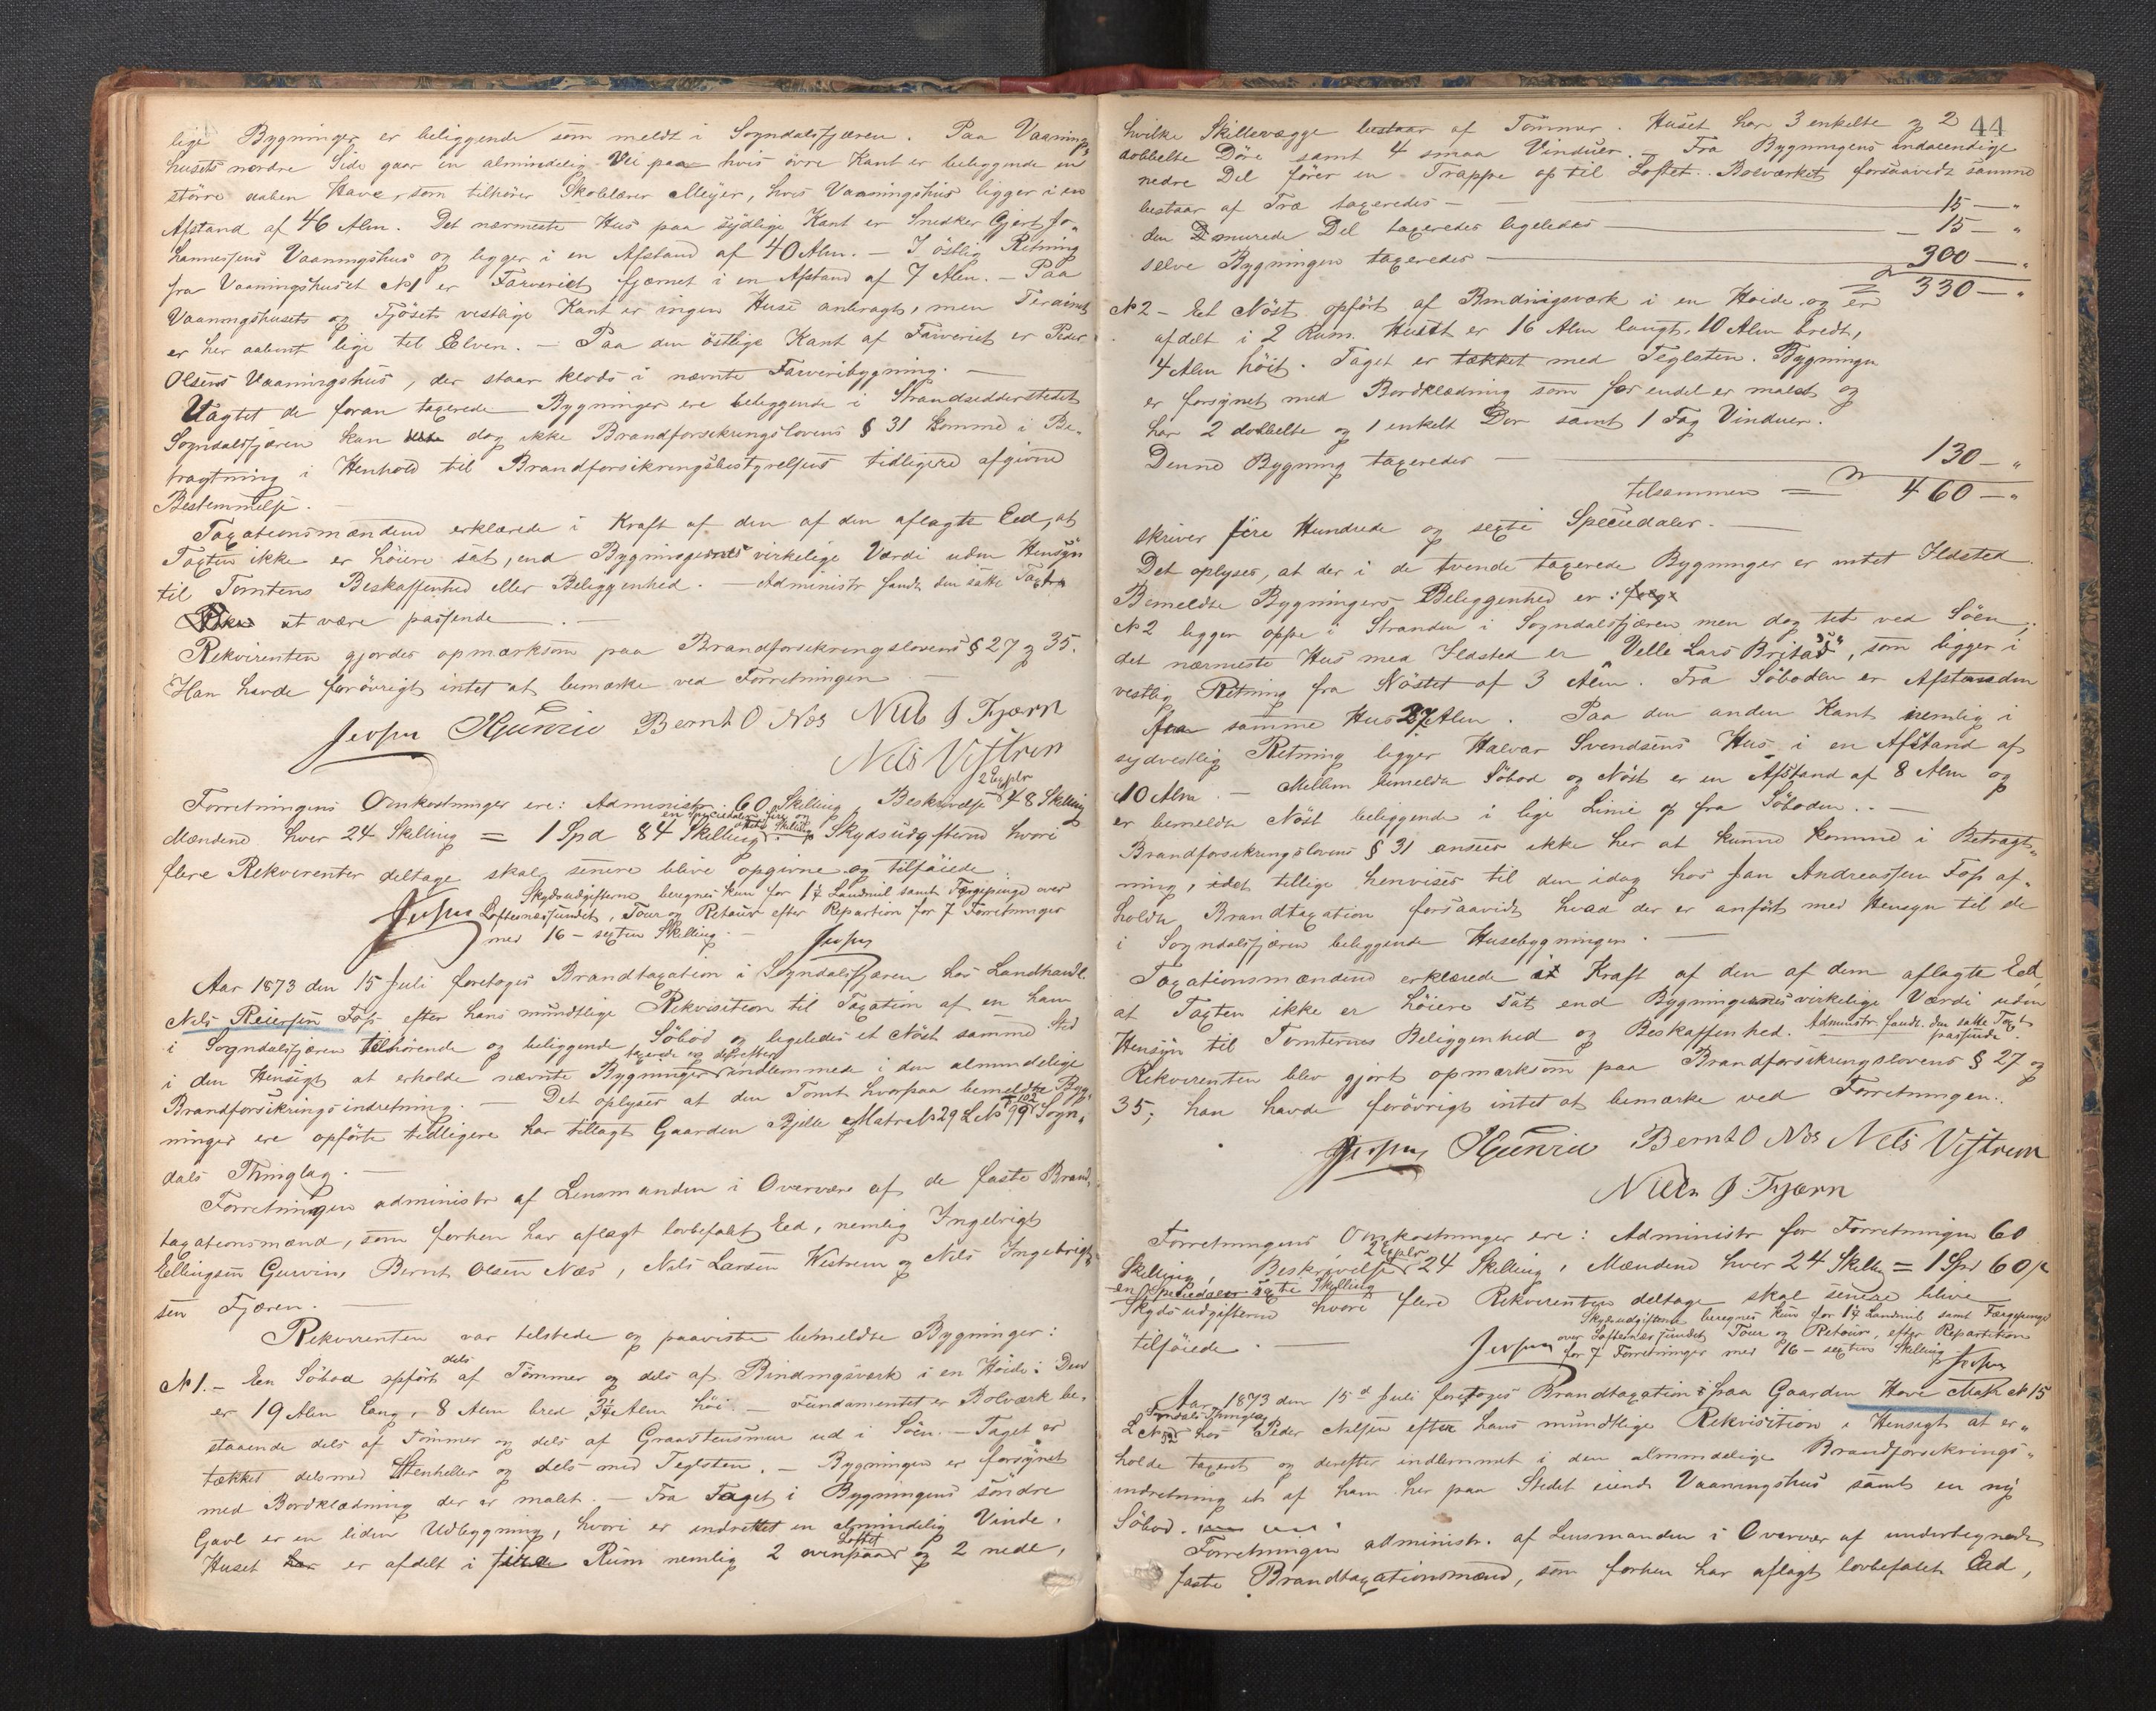 lige Bygninger er beliggende som meldt i Sogndalsfjæren. Paa Vaanings
husets nordre Side gaar en almindelig Vei paa hvis övre Kant er beliggende en
större aaben Have, som tilhörer Skolelærer Meÿer, hvis Vaaningshus ligger i en
Afstand af 46 Alen. Det nærmeste Hus paa sÿdlige Kant er Snedker Gjert Jo„
hannessens Vaaningshus og ligger i en Afstand af 40 Alen. – I östlig Retning
fra Vaaningshuset № 1 er Farveriet fjærnet i en Afstand af 7 Alen. – Paa
Vaaningshusets og Fjösets vestlige Kant er ingen Huse anbragt, men Terainet
er her aabent lige til Elven. – Paa den östlige Kant af Farveriet er Peder
Olsens Vaaningshus, der staar klods i nævnte Farveribygning. —
Uagtet de foran taxerede Bygninger ere beliggende i Strandsidderstedet
Sogndalsfjæren kan dog ikke Brandforsikringslovens § 31 komme i Be„
tragtning i Henhold til Brandforsikringsbestyrelsens tidligere afgivne
Bestemmelse. —
Taxationsmændene erklærede i Kraft af den af dem aflagte Eed, at
Taxten ikke er höiere sat, end Bygningernes virkelige Værdi uden Hensÿn
til Tomtens Beskaffenhed eller Beliggenhed. — Administr fandt den satte Taxt
at være passende. —
Rekvirenten gjordes opmærksom paa Brandforsikringslovens § 27 og 35.
Han havde forövrigt intet at bemærke ved Forretningen —
Jespen IGurvin Bernt O Næs Nils I Fjærn
Nils Vestrem
Forretningens Omkostninger ere: Administr. 60 Skilling, Beskrivelse 2 Explr 48 Skilling
Mændene hver 24 Skilling = 1 Spd 84 Skilling en Speciedaler fire og otteti Skilling. Skydsudgifterne hvori
flere Rekvirenter deltage skal senere blive opgivne og tilföiede.
Skydsudgifterne beregnes kun for 1¼ Landmiil samt Færgepenge over
Loftesnæssundet, Tour og Retour efter Repartion for 7 Forretninger
med 16 – sexten Skilling. —
Aar 1873 den 15 Juli foretoges Brandtaxation i Sogndalsfjæren hos Landhandl.
Nils Reiersen Foss efter hans mundtlige Rekvisition til Taxation af en ham
i Sogndalsfjæren tilhörende og beliggende Söbod og ligeledes et Nöst samme Sted
i den Hensigt at erholde nævnte Bygninger taxerede og derefter indlemmede i den almindelige
Brandforsikringsindretning. — Det oplyses at den Tomt hvorpaa bemeldte Byg„
ninger ere opförte tidligere har tillagt Gaarden Bjelle Matr № 29 L № 99 & 102 Sogn„
dals Thinglag. —
Forretningen administr af Lensmanden i Overvære af de faste Brand„
taxationsmænd, som forhen har aflagt lovbefalet Eed, nemlig Ingebrigt
Ellingsen Gurvin, Bernt Olsen Næs, Nils Larsen Westrem og Nils Ingebrigt„
sen Fjæren. —
Rekvirenten var tilstede og paaviste bemeldte Bygninger:
№ 1. – En Söbod opfört dels af Tömmer og dels af Bindingsværk i en Höide. Den
er 19 Alen lang, 8 Alen bred, 3¼ Alen höi. – Fundamentet er Bolværk be„
staaende dels af Tömmer og dels af Graastensmur ud i Söen. – Taget er
tækket dels med Stenheller og dels med Teglsten. – Bygningen er forsÿnet
med Bordklædning der er malet. – Fra Taget i Bygningens söndre
Gavl er en liden Udbygning, hvori er indrettet en almindelig Vinde.
Huset er afdelt i fire Rum nemlig 2 ovenpaa Loftet og 2 nede,
44
hvilke Skillevægge bestaar af Tömmer. Huset har 3 enkelte og 2
dobbelte Döre samt 4 smaa Vinduer. – Fra Bygningens indvendige
nedre Del förer en Trappe op til Loftet. Bolværket forsaavidt samme
bestaar af Træ taxeredes — 15 — „
den murede Del taxeredes ligeledes — 15 — „
selve Bygningen taxeredes — 300 — „
330 — „
№ 2 – Et Nöst opfört af Bindingsværk i en Höide og er
afdelt i 2 Rum. Huset er 16 Alen langt, 10 Alen bredt,
4 Alen höit. Taget er tækket med Teglsten. Bygningen
er forsÿnet med Bordklædning som for endel er malet og
har 2 dobbelte og 1 enkelt Dör samt 1 Fag Vinduer.
Denne Bygning taxeredes — 130 — „
tilsammen = 460 — „
skriver fire Hundrede og sexti Speciedaler. —
Det oplyses, at der i de tvende taxerede Bygninger er intet Ildsted.
Bemeldte Bygningers Beliggenhed er:
№ 2 ligger oppe i Stranden i Sogndalsfjæren men dog tet ved Söen,
det nærmeste Hus med Ildsted er Velle Lars, som ligger i
vestlig Retning fra Nöstet af 3 Alen. Fra Söboden er Afstanden
fra samme Hus 27 Alen. Paa den anden Kant nemlig i
sydvestlig Retning ligger Halvar Svendsens Hus i en Afstand af
10 Alen. – Mellem bemeldte Söbod og Nöst er en Afstand af 8 Alen og
er bemeldte Nöst beliggende i lige Linie op fra Söboden. —
Brandforsikringslovens § 31 ansees ikke her at kunne komme i Betragt„
ning, idet tillige henvises til den idag hos Jan Andreassen Foss af„
holdte Brandtaxation forsaavidt hvad der er anfört med Hensyn til de
i Sogndalsfjæren beliggende Husebygninger. —
Taxationsmændene erklærede i Kraft af den af dem aflagte Eed,
at Taxten ikke er höiere sat end Bygningernes virkelige Værdi uden
Hensÿn til Tomternes Beliggenhed og Beskaffenhed. Administr fandt den satte Taxt passende.
Rekvirenten blev gjort opmærksom paa Brandforsikringslovens § 27 og
35; han havde forövrigt intet at bemærke ved Forretningen.
Jespen IGurvin Bernt O Næs Nils Vestrem
Nils I Fjærn
Forretningens Omkostninger ere: Administr for Forretningen 60
Skilling, Beskrivelse 2 Explr 24 Skilling, Mændene hver 24 Skilling = 1 Spd 60 s
en Speciedaler sexti Skilling
Skydsudgifterne hvori flere Rekvirenter deltage skal senere blive
tilföiede. — Skydsudgifterne beregnes kun for 1¼ Landmiil samt Færgepenge
over Loftesnæssundet Tour og Retour, efter Repartition
for 7 Forretninger med 16 – sexten Skilling
Aar 1873 den 15d Juli foretoges Brandtaxation paa Gaarden Hove Matr № 15
L № 52 Sogndals Thinglag hos Peder Nilsen efter hans mundtlige Rekvisition i Hensigt at er„
holde taxeret og derefter indlemmet i den almindelige Brandforsikrings„
indretning et af ham her paa Stedet eiende Vaaningshus samt en nÿ
Söbod.
Forretningen administr. af Lensmanden i Overvær af undertegnede
faste Brandtaxationsmænd, som forhen har aflagt lovbefalet Eed,